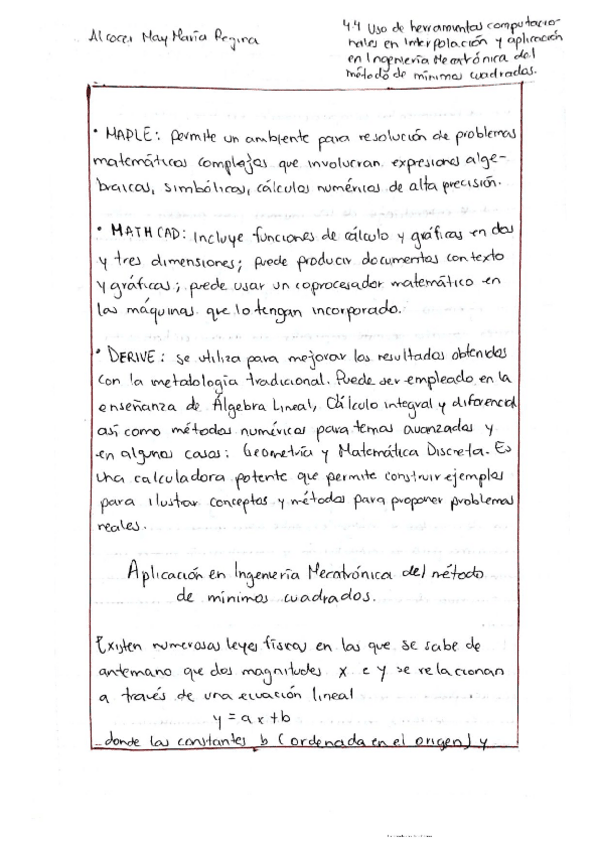 Alcocer May María Regina
4.4 Uso de herramientas computacio-
nales en Interpolación y aplicación
en Ingeniería Mecatrónica del
método de mínimos cuadrados.
• MAPLE: permite un ambiente para resolución de problemas
matemáticos complejos que involucran expresiones alge-
braicas, simbólicas, cálculos numéricos de alta precisión.
• MATHCAD: Incluye funciones de cálculo y gráficas en dos
y tres dimensiones; puede producir documentos con texto
y gráficas; puede usar un coprocesador matemático en
las máquinas que lo tengan incorporado.
• DERIVE: se utiliza para mejorar los resultados obtenidos
con la metodología tradicional. Puede ser empleado en la
enseñanza de Álgebra Lineal, Cálculo integral y diferencial
así como métodos numéricos para temas avanzados y
en algunos casos: Geometría y Matemática Discreta. Es
una calculadora potente que permite construir ejemplos
para ilustrar conceptos y métodos para proponer problemas
reales.
Aplicación en Ingeniería Mecatrónica del método
de mínimos cuadrados.
Existen numerosas leyes físicas en las que se sabe de
antemano que dos magnitudes x e y se relacionan
a través de una ecuación lineal
y = ax+b
donde las constantes b (ordenada en el origen) y